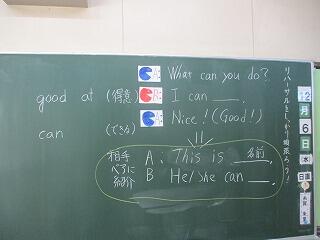 A: What can you do?
good at (得意) B: I can ___.
A: Nice! (Good!)
can (できる)
相手ペアに紹介
A: This is 名前
B He/She can ___.
リハーサルをしっかり頑張ろう!
2月6日(水)
日直